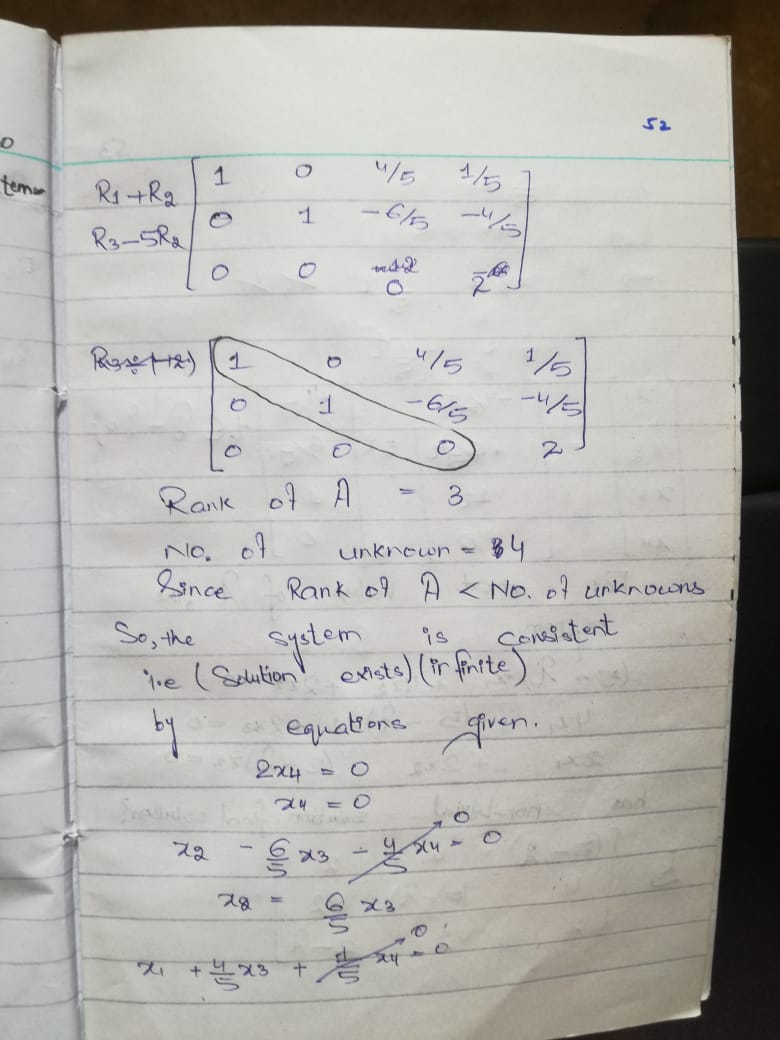 52
o
tem
R1+R2 [ 1 0 4/5 1/5 ]
R3-5R2 [ 0 1 -6/5 -4/5 ]
[ 0 0 0 2 ]
R3÷(-12) [ 1 0 4/5 1/5 ]
[ 0 1 -6/5 -4/5 ]
[ 0 0 0 2 ]
Rank of A = 3
No. of unknown = 4
Since Rank of A < No. of unknowns
So, the system is consistent
i.e (Solution exists) (infinite)
by equations given.
2x4 = 0
x4 = 0
x2 - 6/5 x3 - 4/5 x4 = 0
0
x2 = 6/5 x3
x1 + 4/5 x3 + 1/5 x4 = 0
0